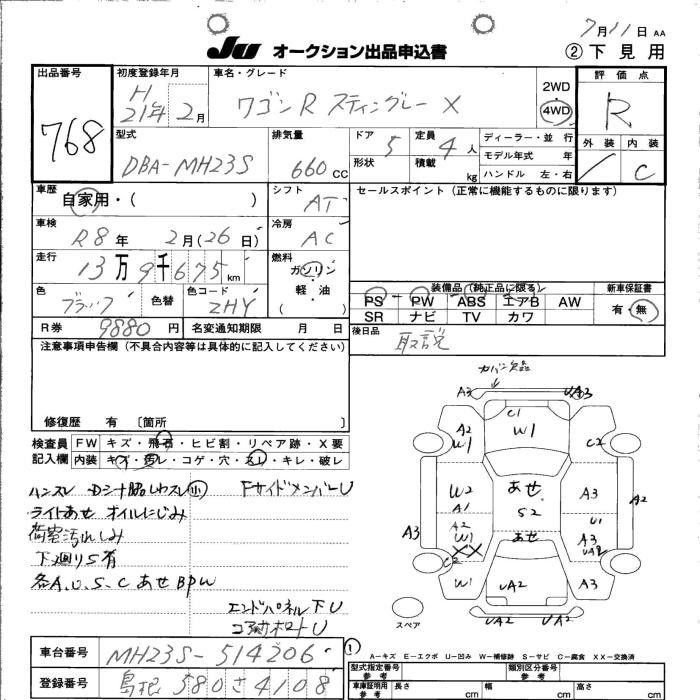 7月11日 AA
JU オークション出品申込書
② 下見用
出品番号
768
初度登録年月
H
21年 2月
車名・グレード
ワゴンR スティングレー X
2WD
4WD
評価点
R
外装 内装
／ C
型式
DBA-MH23S
排気量
660 CC
ドア
5
定員
4 人
形状
積載
kg
ディーラー・並 行
モデル年式 年
ハンドル 左・右
車歴
自家用・( )
シフト
AT
セールスポイント (正常に機能するものに限ります)
車検
R8年 2月(26日)
冷房
AC
走行
13万9千675km
燃料
ガソリン
軽・油
( )
色
ブラック
色替
色コード
ZHY
装備品 (純正品に限る)
新車保証書
PS PW ABS エアB AW
SR ナビ TV カワ
有・無
R券 9880円
名変通知期限 月 日
後日品
取説
注意事項申告欄 (不具合内容等は具体的に記入してください)
修復歴 有 〔箇所 〕
検査員
記入欄
FW キズ・飛石・ヒビ割・リペア跡・X要
内装 キズ・汚レ・コゲ・穴・スレ・キレ・破レ
ハンスレ Dシート脇しわスレ小 Fサイドメンバーu
ライトあせ オイルにじみ
荷室汚れしみ
下廻りS有
各A.U.S.C あせ BPW
エンドパネル下U
コアサポートU
カバー欠品
A3 UA3
C1
W1
A2
W1
C2
W2
A1
あせ
S2
A3
A2
U1
A3
A2
W1
XX
あせ
A3
UA2
C2
W1
UA2
A3
UA2 UA2
スペア
① A－キズ E－エクボ U－凹み W－補修跡 S－サビ C－腐食 XX－交換済
車台番号 MH23S-514206
登録番号 島根 580 さ 4108
型式指定番号
参考
類別区分番号
参考
車庫証明用
参考
長さ cm
幅 cm
高さ cm